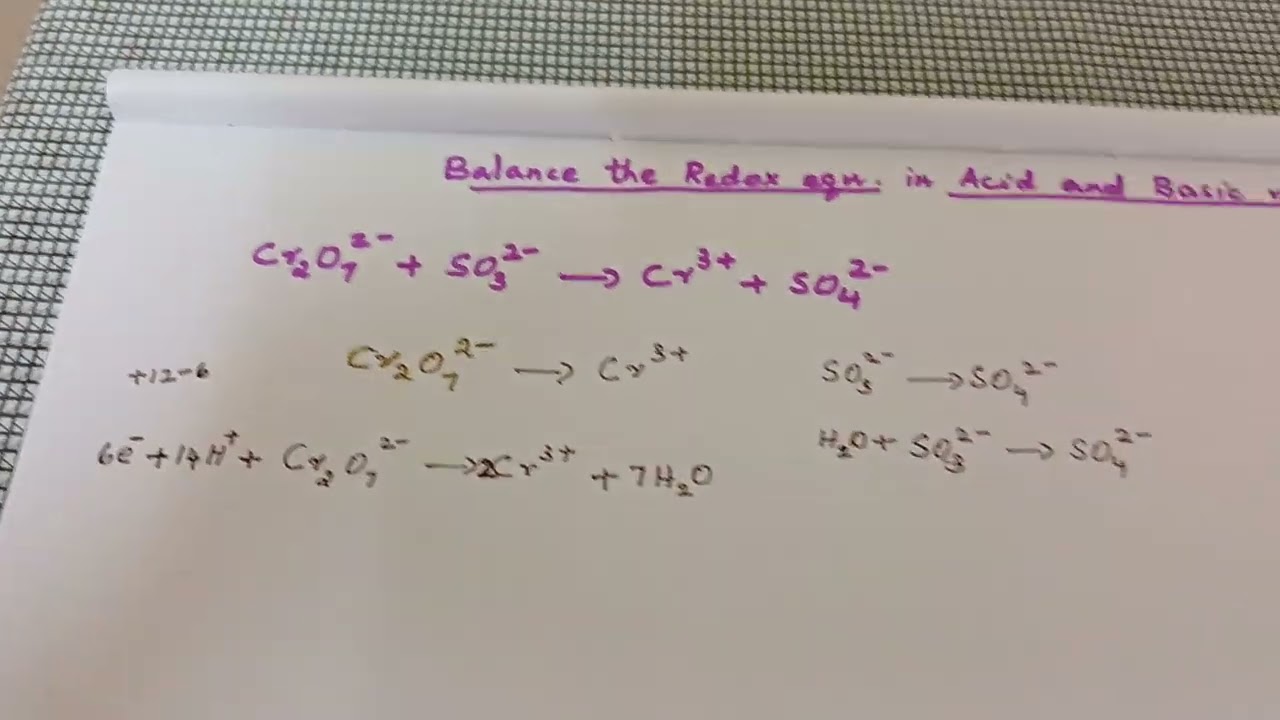 Balance the Redox eqn. in Acid and Basic
Cr₂O₇²⁻ + SO₃²⁻ → Cr³⁺ + SO₄²⁻
Cr₂O₇²⁻ → Cr³⁺ SO₃²⁻ → SO₄²⁻
+12-6
6e⁻ + 14H⁺ + Cr₂O₇²⁻ → 2Cr³⁺ + 7H₂O H₂O + SO₃²⁻ → SO₄²⁻